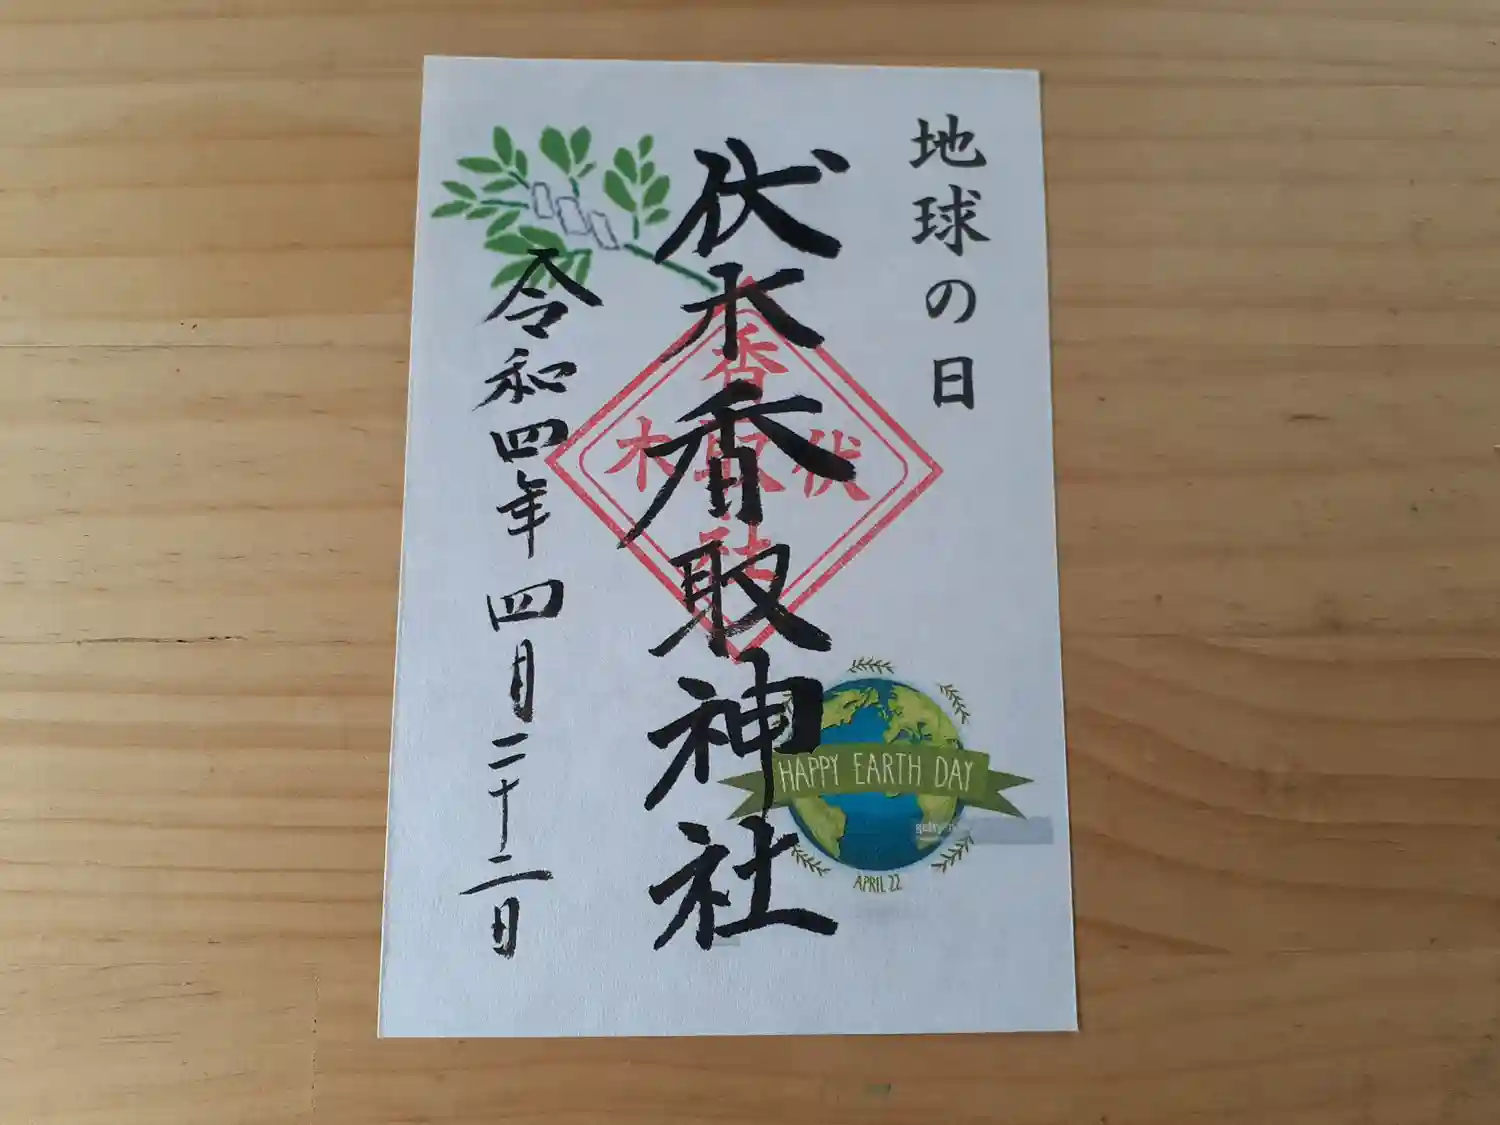 地球の日
伏木香取神社
香
木取伏
社
令和四年四月二十二日
HAPPY EARTH DAY
APRIL 22